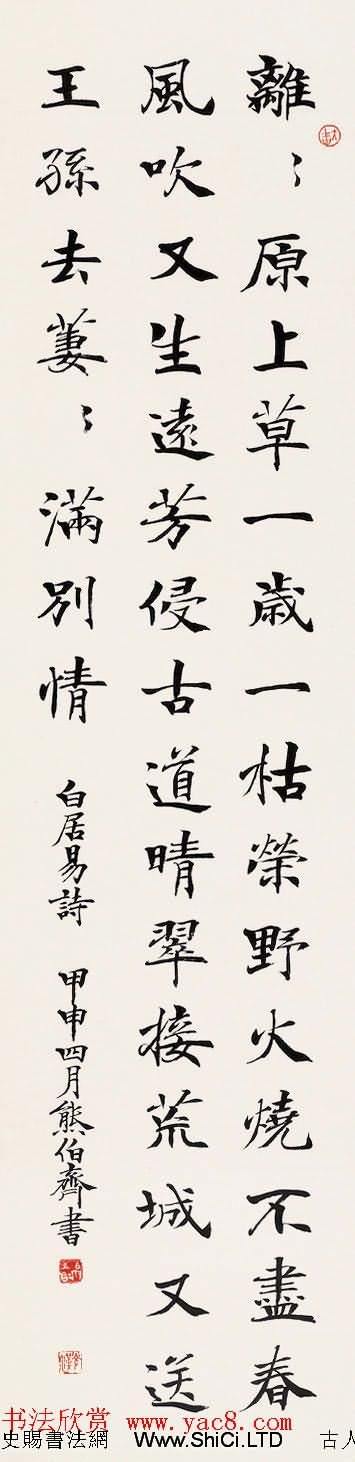 離〻原上草一歲一枯榮野火燒不盡春
風吹又生遠芳侵古道晴翠接荒城又送
王孫去萋〻滿別情
白居易詩 甲申四月熊伯齊書
书法欣赏 www.yac8.com
史賜書法網 Www.ShiCi.LTD 古人